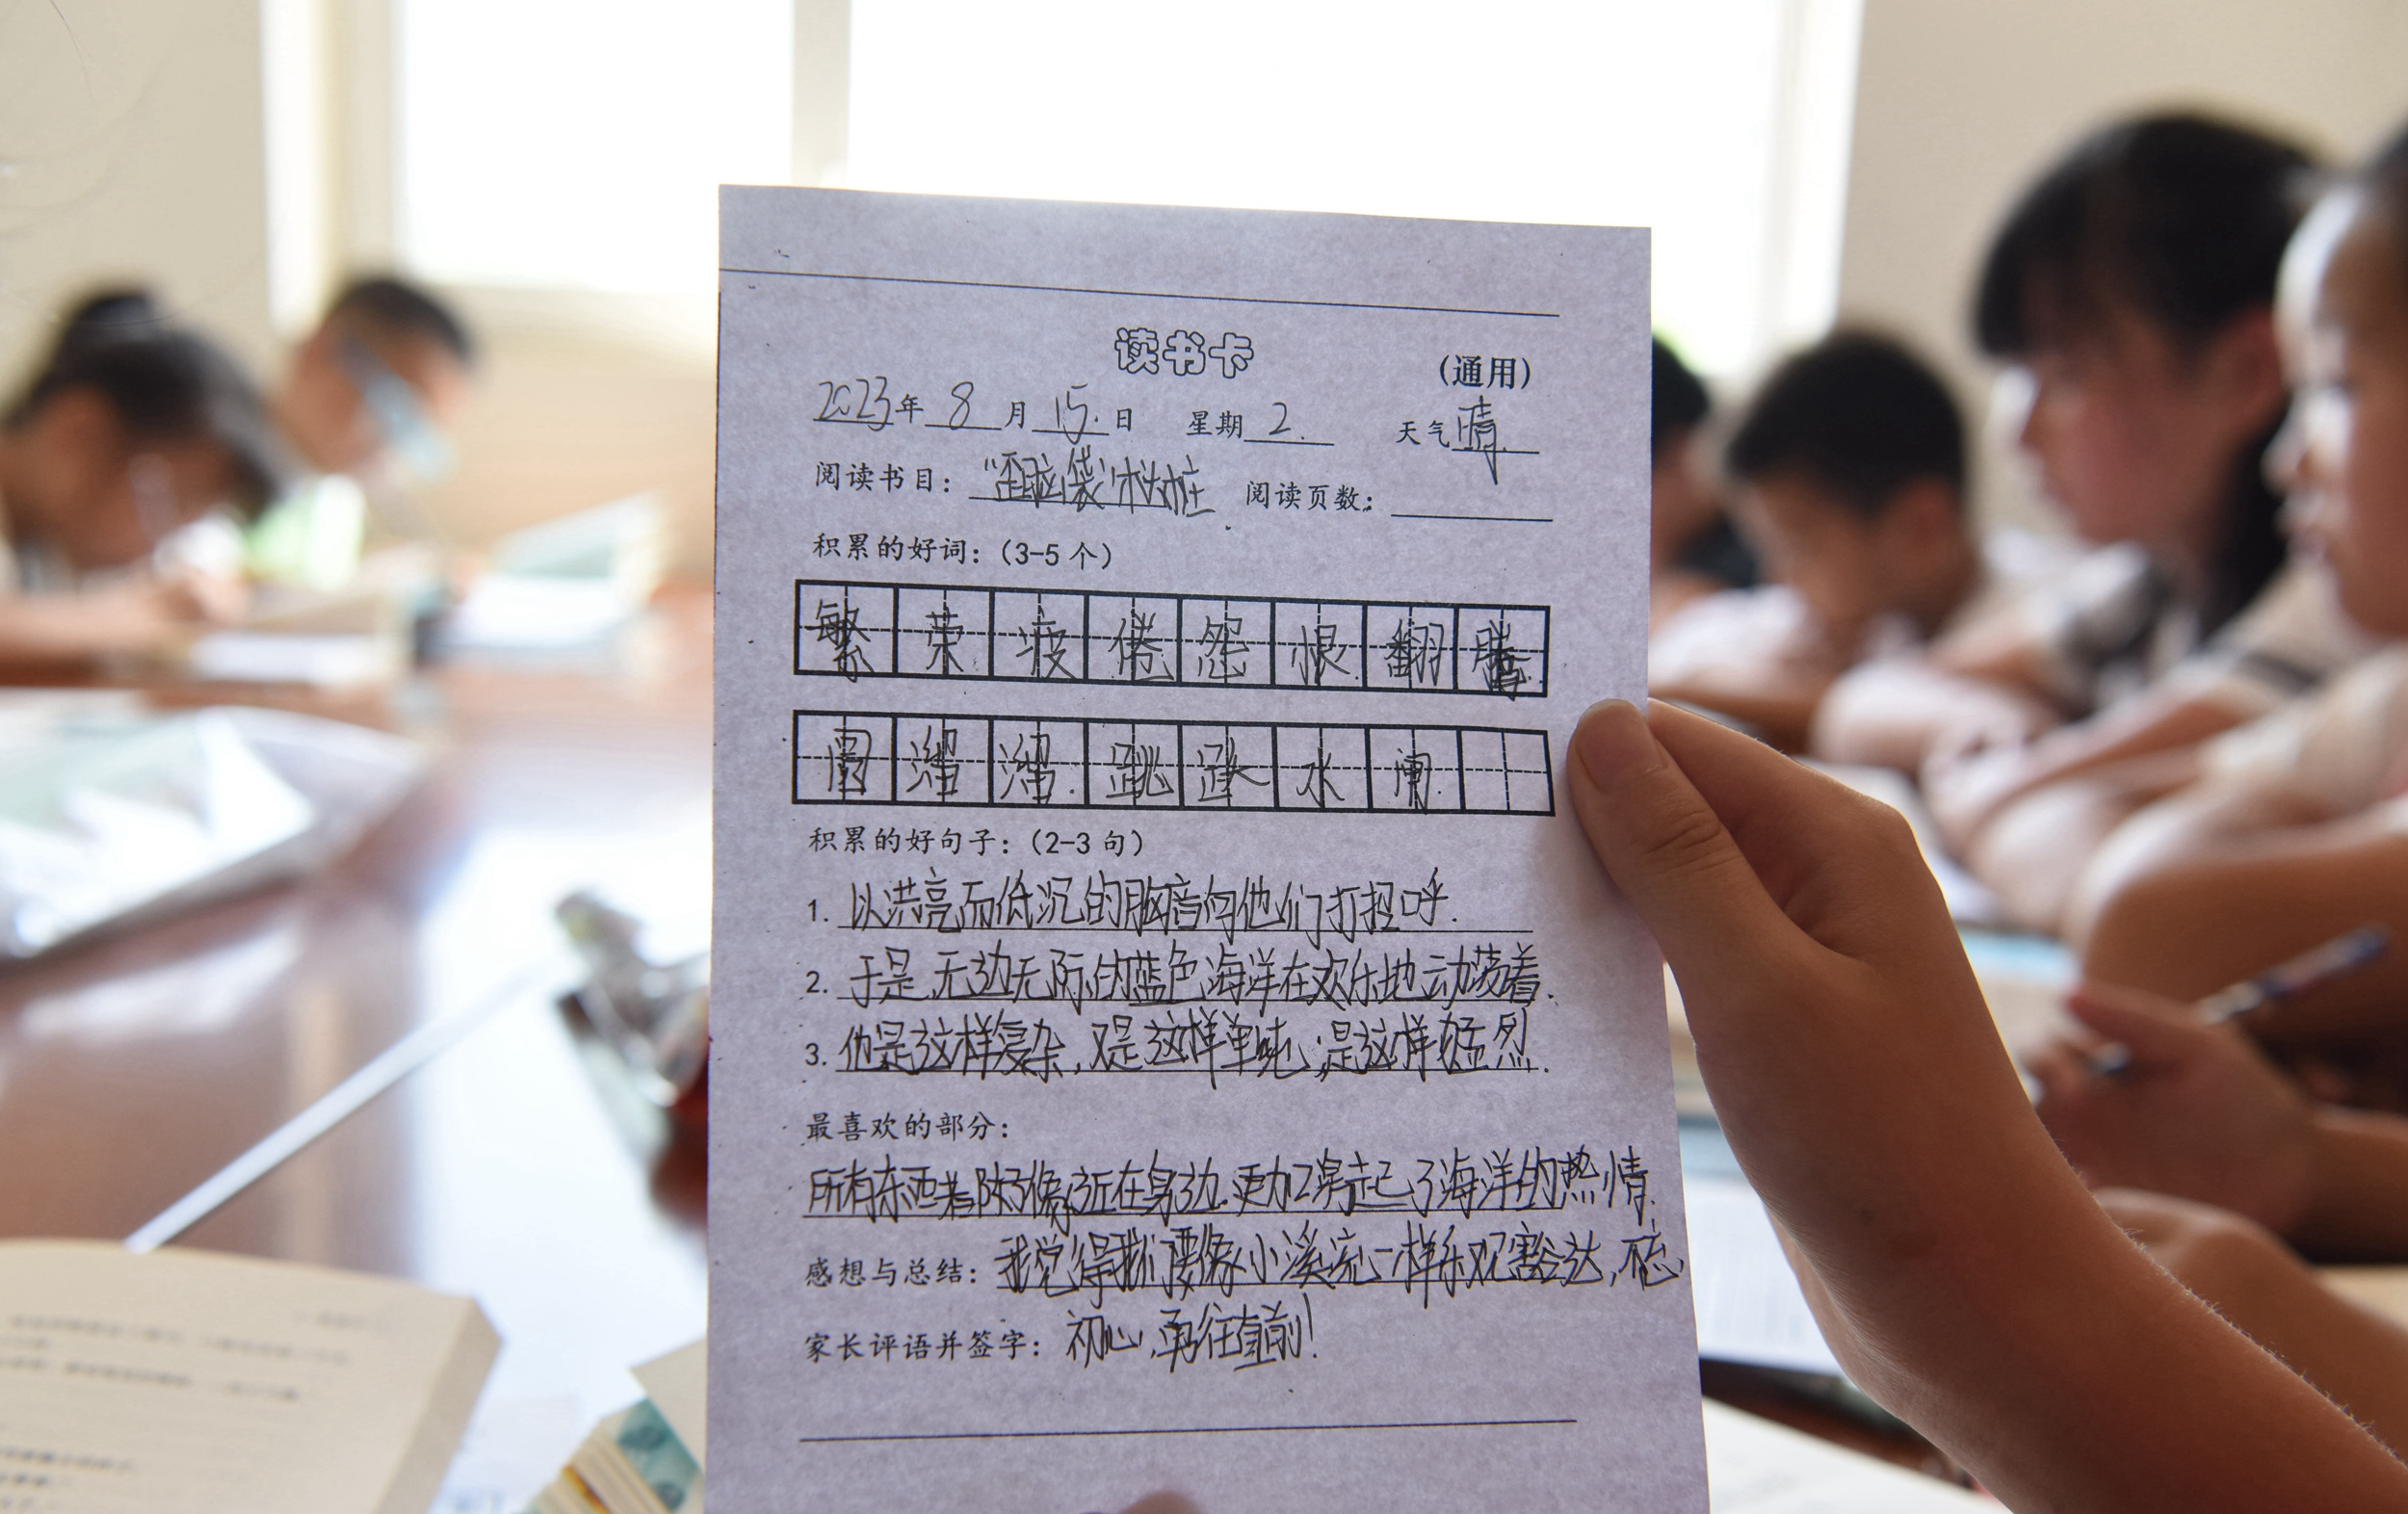 读书卡
(通用)
2023年 8 月 15. 日 星期 2. 天气 晴.
阅读书目： “歪脑袋”木头桩 阅读页数：
积累的好词：（3-5 个）
繁荣疲倦怨恨翻腾
圆溜溜.跳 水 阑.
积累的好句子：（2-3 句）
1. 以洪亮而低沉的胸音向他们打招呼.
2. 于是,无边无际的蓝色海洋在欢乐地动荡着.
3. 他是这样复杂,又是这样单纯,是这样猛烈.
最喜欢的部分：
所有东西都好像近在身边.更加了海洋的热情.
感想与总结： 我觉得我们要像小溪流一样乐观豁达,不忘
家长评语并签字： 初心,勇往直前!